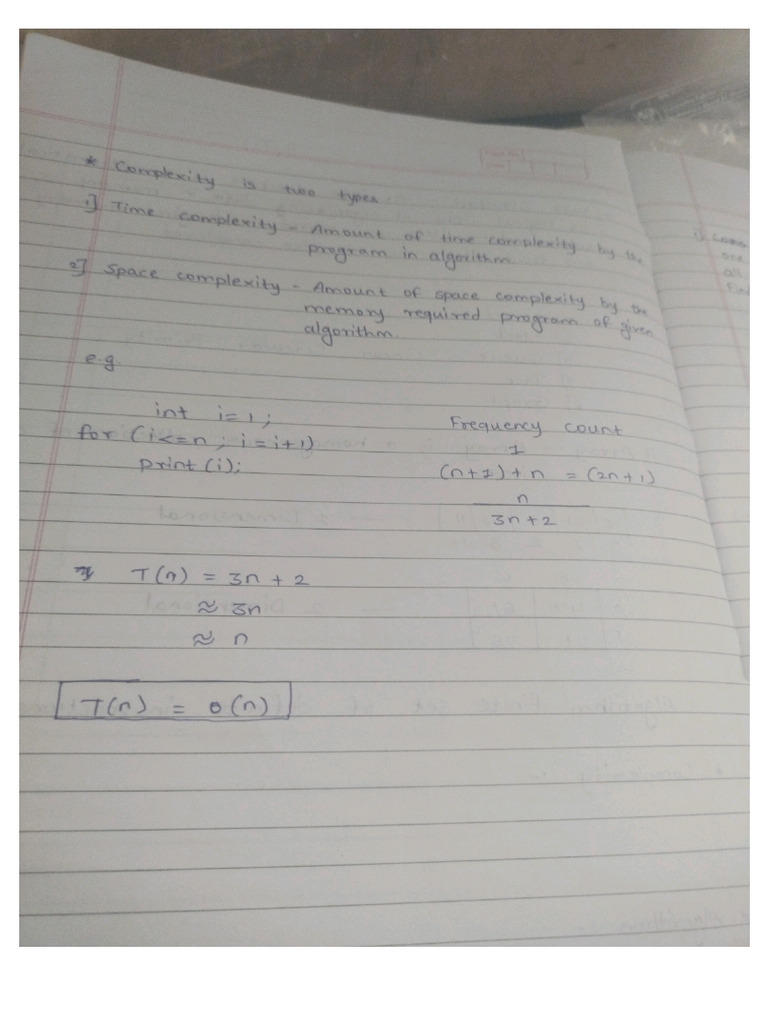 * Complexity is two types
1] Time complexity - Amount of time complexity by the
program in algorithm.
2] Space complexity - Amount of space complexity by the
memory required program of given
algorithm.
e.g.
int i=1;
Frequency count
for (i<=n ; i=i+1)
1
print(i);
(n+1)+n = (2n+1)
n
3n+2
T(n) = 3n + 2
≈ 3n
≈ n
T(n) = o(n)